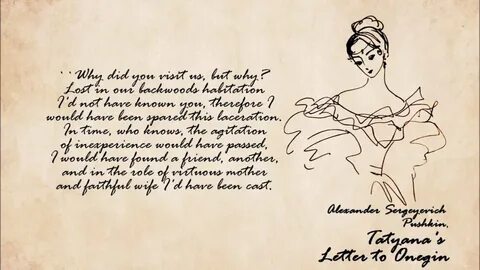 ``Why did you visit us, but why?
Lost in our backwoods habitation
I'd not have known you, therefore I
would have been spared this laceration.
In time, who knows, the agitation
of inexperience would have passed,
I would have found a friend, another,
and in the role of virtuous mother
and faithful wife I'd have been cast.
Alexander Sergeyevich
Pushkin,
Tatyana's
Letter to Onegin